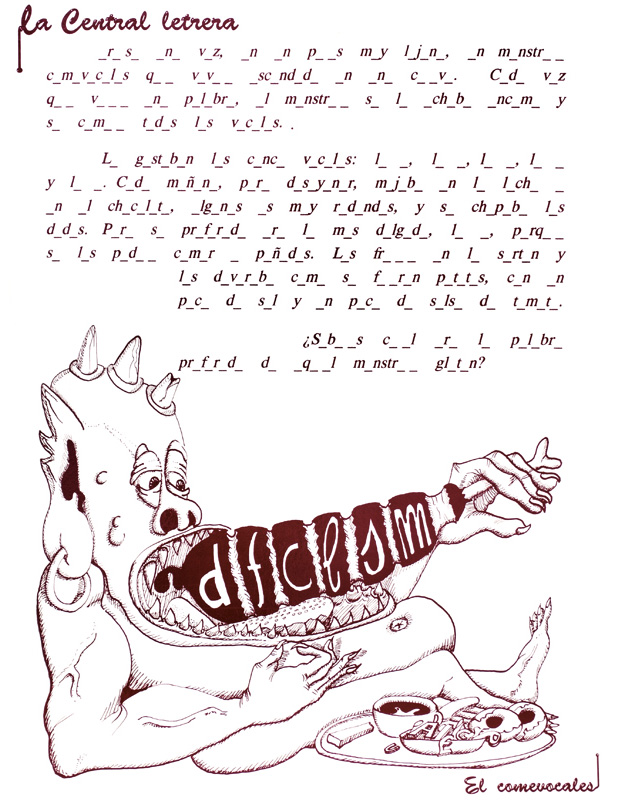 La Central letrera
_r_s_ _n_ v_z, _n _n p__s m_y l_j_n_, _n m_nstr__
c_m_v_c_l_s q__ v_v__ _sc_nd_d_ _n _n_ c__v_. C_d_ v_z
q__ v___ _n_ p_l_br_, _l m_nstr__ s_ l_ _ch_b_ _nc_m_ y
s_ c_m__ t_d_s l_s v_c_l_s. .
L_ g_st_b_n l_s c_nc_ v_c_l_s: l_ _, l_ _, l_ _, l_ _
y l_ _. C_d_ m_ñ_n_, p_r_ d_s_y_n_r, m_j_b_ _n l_ l_ch_ _
_n _l ch_c_l_t_, _lg_n_s _s m_y r_d_nd_s, y s_ ch_p_b_ l_s
d_d_s. P_r_ s_ pr_f_r_d_ _r_ l_ m_s d_lg_d_, l_ _, p_rq__
s_ l_s p_d__ c_m_r _ p_ñ_d_s. L_s fr___ _n l_ s_rt_n y
l_s d_v_r_b_ c_m_ s_ f__r_n p_t_t_s, c_n _n
p_c_ d_ s_l y _n p_c_ d_ s_ls_ d_ t_m_t_.
¿S_b__s c__l _r_ l_ p_l_br_
pr_f_r_d_ d_ _q__l m_nstr__ gl_t_n?
d f c l s m
El comevocales